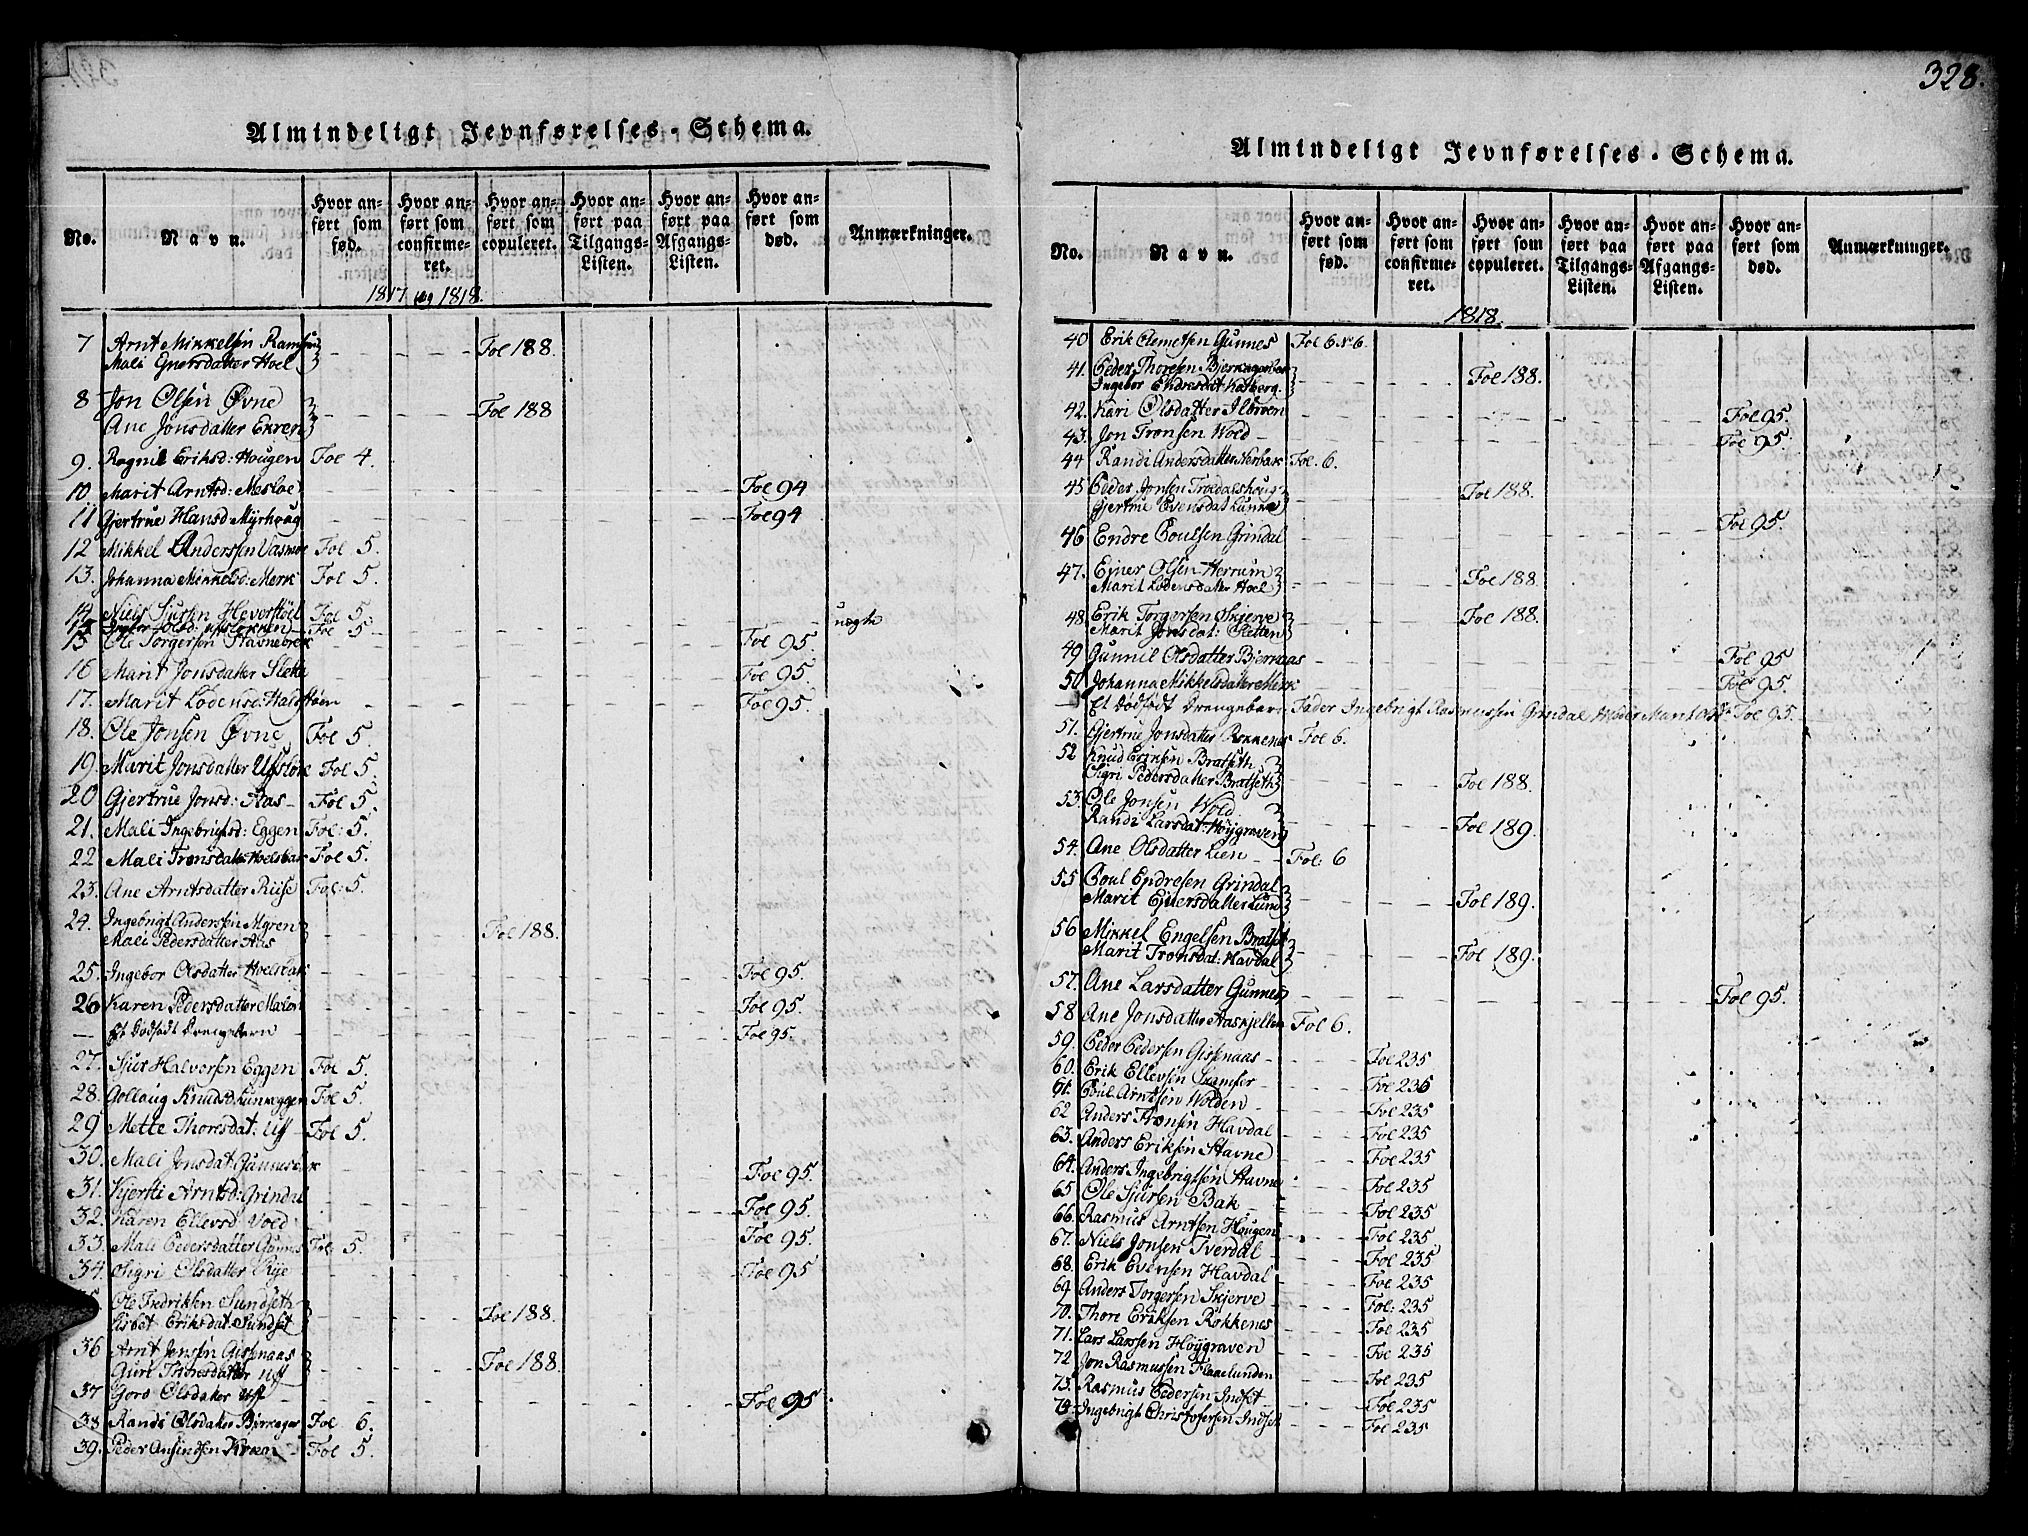 328.
Almindeligt Jevnførelses-Schema.
No.
Navn.
Hvor anført som fød.
Hvor anført som confirmeret.
Hvor anført som copuleret.
Hvor anført paa Tilgangs-Listen.
Hvor anført paa Afgangs-Listen.
Hvor anført som død.
Anmærkninger.
1817 og 1818.
7 Arnt Mikkelsen
Mali Ejnersdatter Hoel Fol 188.
8 Jon Olsen Øvne
Ane Jonsdatter Ekren Fol 188
9. Ragnil Eriksd: Hougen Fol 4.
10 Marit Arntsd: Mesloe Fol 94
11 Gjertrue Hansd Myrhoug Fol 94
12 Mikkel Anderssen Fol 5.
13. Johanna Mikkelsd: Merk Fol 5.
14 Niels Sjursen Fol 5
Olsd: Fol 5 uægte
15 Ole Torgersen Stavnebrek Fol 95.
16 Marit Jonsdatter Slette Fol 95.
17. Marit Lodensd: Halsthøen Fol 95.
18. Ole Jonsen Øvne Fol 5
19. Marit Jonsdatter Fol 5.
20 Gjertrue Jonsd: Aas Fol 5.
21. Mali Ingebrigtsd: Eggen Fol: 5.
22 Mali Tronsdatter Hoelsbak Fol 5.
23. Ane Arntsdatter Riise Fol: 5.
24. Ingebrigt Anderssen Mgren
Mali Pedersdatter Aas Fol 188.
25. Ingebor Olsdatter Hoelsbak Fol 95.
26 Karen Pedersdatter Fol 95.
— Et Dødfødt Drengebarn Fol 95.
27. Sjur Halvorsen Eggen Fol 5.
28. Gollaug Knudsd: Fol 5.
29 Mette Thoresdat: Uff Fol 5.
30. Mali Jonsdat: Fol 95.
31. Kjersti Arntsd: Grindal Fol 95.
32. Karen Ellevsd Vold Fol 95.
33. Mali Pedersdatter Gunnes Fol: 5.
34. Sigri Olsdatter Rye Fol 95
Ole Fredriksen Sundseth
Lisbet Eriksdat: Sundset Fol 188.
36 Arnt Jonsen Gisenaas
Guri Thoresdatter Uff Fol 188.
37 Goro Olsdatter Uff Fol 95
38 Randi Olsdatter Bjerkager Fol 6.
39. Peder Fol 5.
Almindeligt Jevnførelses-Schema.
No.
Navn.
Hvor anført som fød.
Hvor anført som confirmeret.
Hvor anført som copuleret.
Hvor anført paa Tilgangs-Listen.
Hvor anført paa Afgangs-Listen.
Hvor anført som død.
Anmærkninger.
1818.
40 Erik Clemetsen Gunnes Fol 6 No 6.
41. Peder Thoresen
Ingebor Endresdat: Fol 188.
42. Kari Olsdatter Ilbroen Fol 95.
43. Jon Tronsen Wold Fol 95.
44 Randi Andersdatter Fol. 6.
45 Peder Jonsen Troedalshoug
Gjertrue Evensdat: Lunne Fol 188.
46 Endre Poulsen Grindal Fol 95.
47. Ejner Olsen Herrum
Marit Lodensdatter Hoel Fol 188.
48. Erik Torgersen Skjerve
Marit Jonsdat: Sletten Fol 188.
49 Gunnil Olsdatter Bjernaas Fol 95
50 Johanna Mikkelsdatter Merk Fol 95.
— Et Dødfødt Drengebarn Fader Ingebrigt Rasmussen Grindal Moder Marit Fol 95.
51. Gjertrue Jonsdatter Rokkenes Fol 6.
52 Knud Eriksen Bratseth
Sigri Pedersdatter Bratseth Fol 188.
53. Ole Jonsen Wold
Randi Larsdat: Høygraven Fol 189.
54. Ane Olsdatter Lien Fol: 6
55 Poul Endresen Grindal
Marit Ejnersdatter Lund Fol 189.
56 Mikkel Engelsen Bratset
Marit Tronsdat: Havdal Fol 189.
57. Ane Larsdatter Gunnes Fol 95.
58 Ane Jonsdatter Aaskjellen Fol 6.
59. Peder Pedersen Gisenaas Fol 235
60. Erik Ellevsen Kramser Fol 235
61. Poul Arntsen Wolden Fol 235
62 Anders Tronsen Havdal Fol 235
63. Anders Eriksen Stavne Fol 235
64. Anders Ingebrigtsen Stavne Fol 235
65 Ole Sjursen Bak Fol 235
66. Rasmus Arntsen Hougen Fol 235
67. Niels Jonsen Tverdal Fol 235
68. Erik Evensen Havdal Fol 235
69 Anders Torgersen Skjerve Fol: 235
70. Thore Eriksen Rokkenes Fol 235
71. Lars Larssen Høygraven Fol 235
72. Jon Rasmussen Flaalunden Fol 235
73. Rasmus Pedersen Indset Fol 235
74. Ingebrigt Christofersen Indset Fol 235